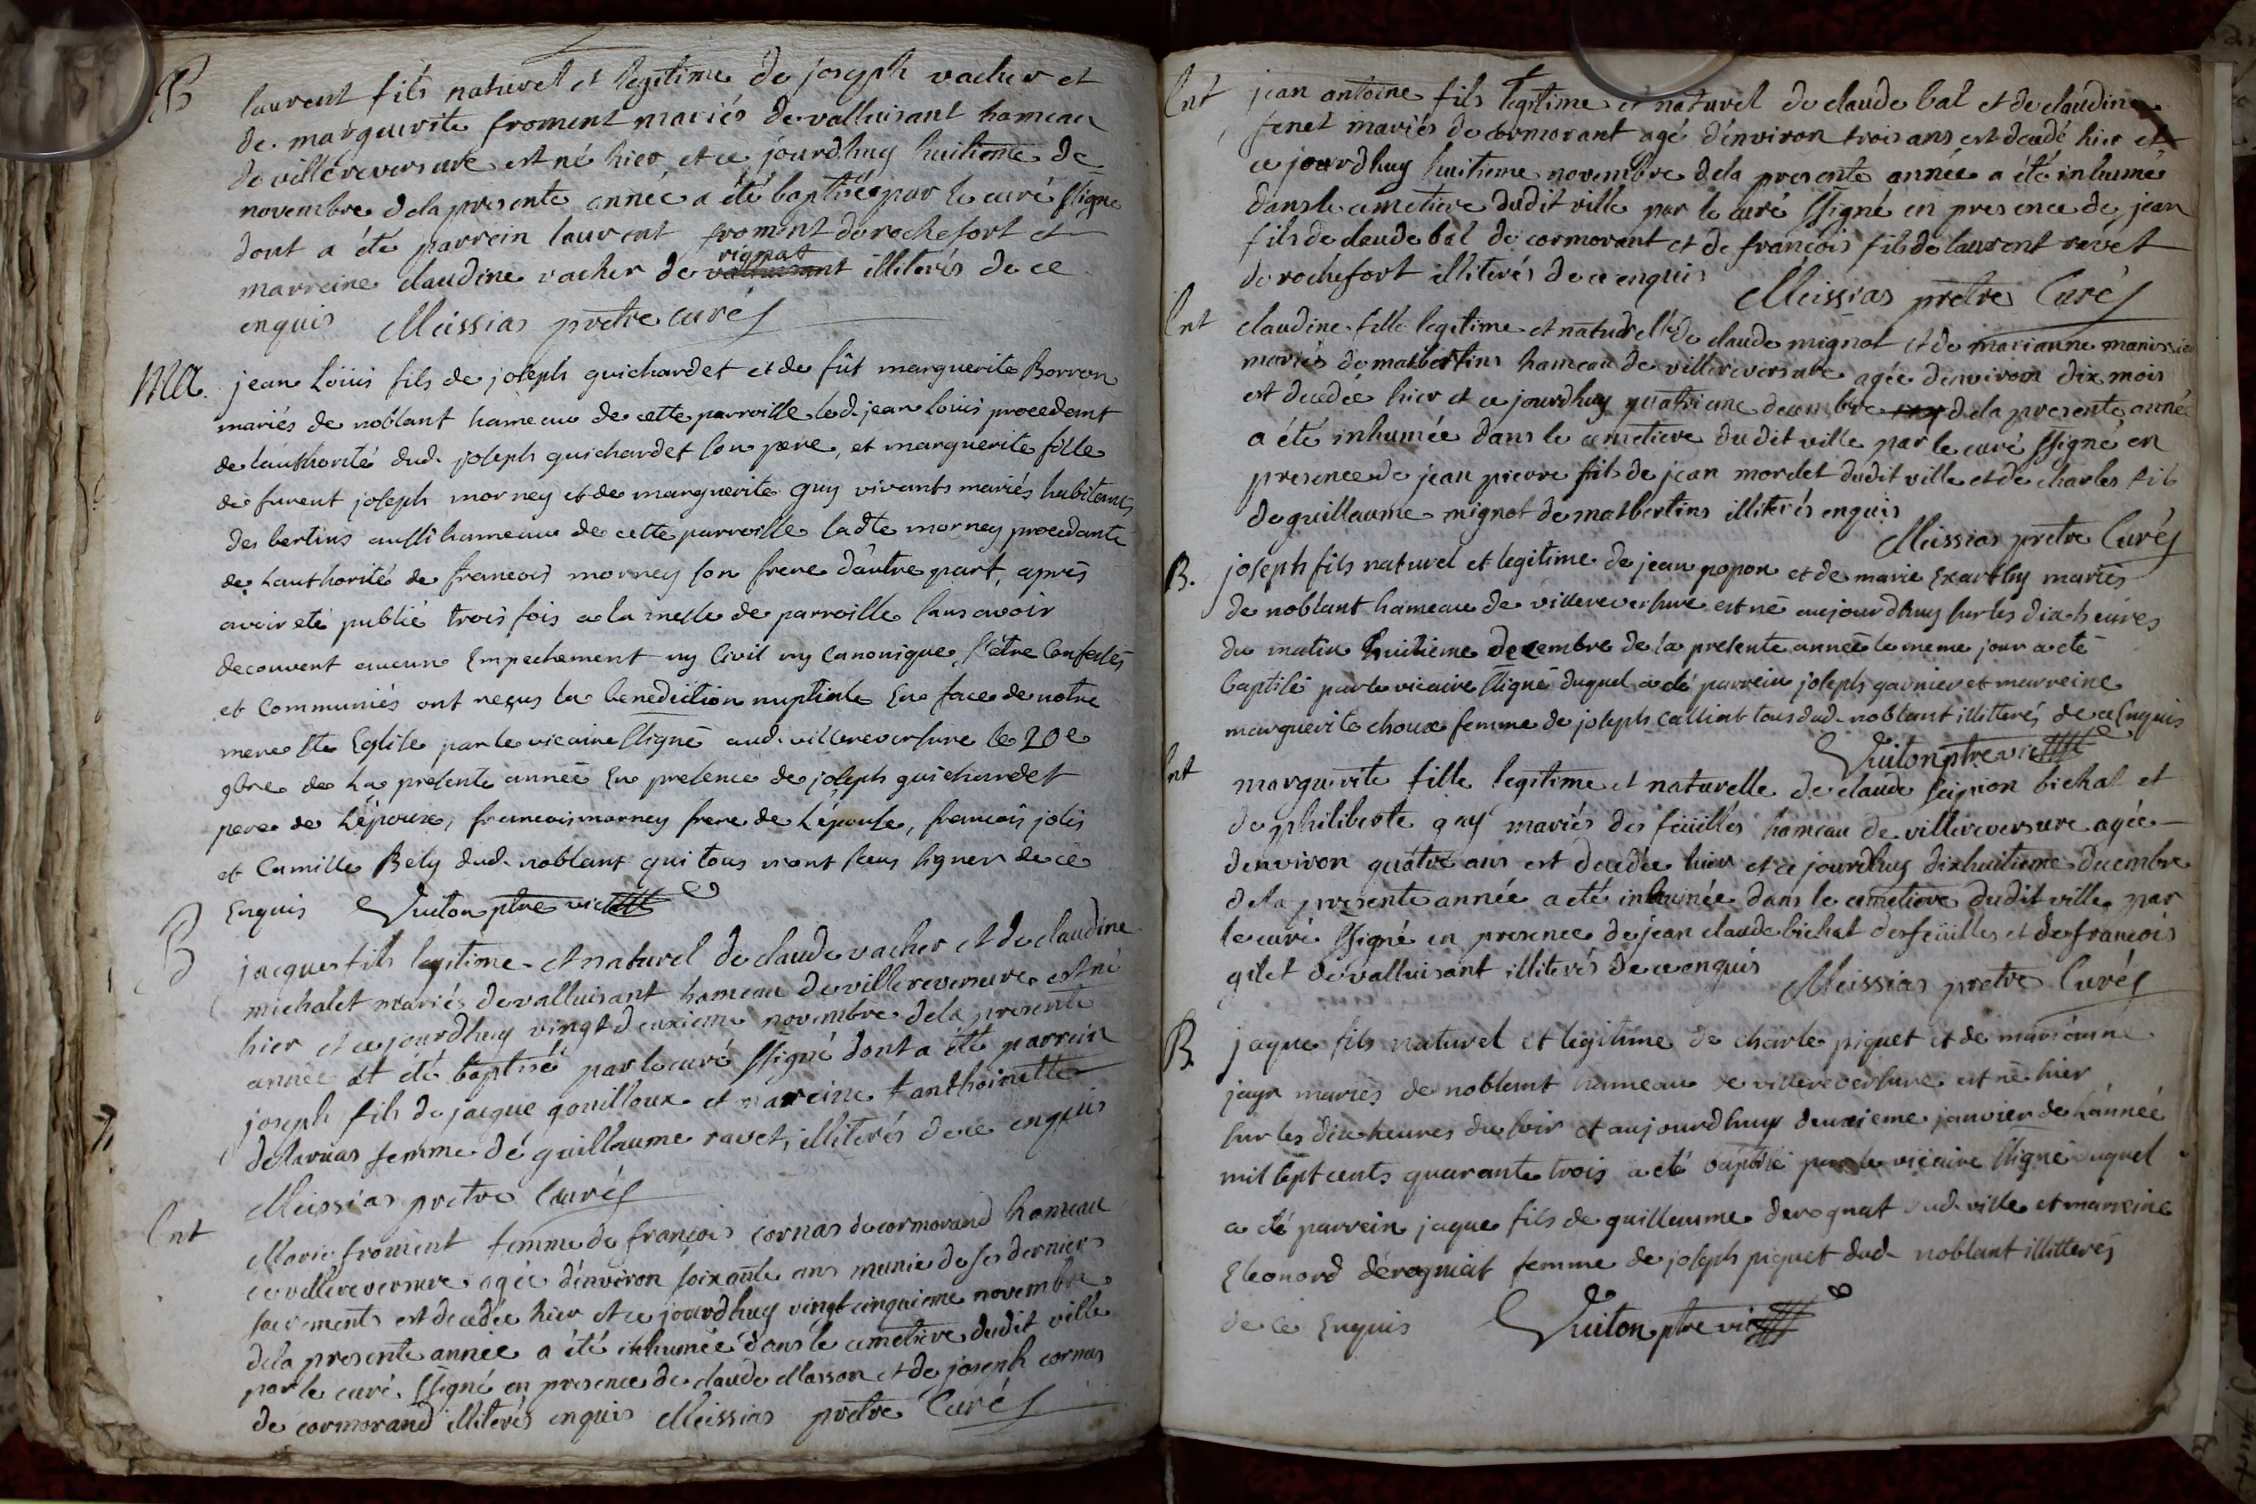 B
laurent fils naturel et legitime de joseph vacher et
de marguerite froment mariés de valluisant hameau
de villereversure est né hier et ce jourdhuy huitieme de
novembre dela presente année a été baptisé par le curé ssigné
dont a été parrein laurent froment de rochefort et
rignat
marreine claudine vacher de valluisant illiterés de ce
enquis Meissias pretre curé
Ma.
jean Loüis fils de joseph guichardet et de fût marguerite Borron
mariés de noblant hameau de cette parroisse led. jean loüis procedant
de l'authorité dud. joseph guichardet son pere, et marguerite fille
de furent joseph morney et de marguerite guy vivants mariés habitants
des bertins aussi hameau de cette parroisse ladte morney procedante
de l'authorité de francois morney son frere d'autre part, aprés
avoir eté publié trois fois a la messe de parroisse sans avoir
decouvert aucun Empechement ny Civil ny Canonique, s'etre Confessés
et Communiés ont reçus la benediction nuptiale En face de notre
mere Ste Eglise par le vicaire ssigné aud. villereversure le 20e
9bre de La presente année En presence de joseph guichardet
pere de L'époux, francois morney frere de L'épouse, francois jolis
et Camille Bely dud. noblant qui tous n'ont sceu signer de ce
Enquis Vuiton ptre vic
B
jacque fils legitime et naturel de claude vacher et de claudine
michalet mariés de valluisant hameau de villereversure est né
hier et ce jourdhuy vingt deuxieme novembre dela presente
année at été baptisé par le curé ssigné dont a été parrein
joseph fils de jacque gouilloux et mareine anthoinette
delarnas femme dé guillaume ravet, illiterés de ce enquis
Meissias pretre Curé
Ent
Marie froment femme de françois cornas de cormorand hameau
de villereversure agée d'environ soixante ans munie de ses derniers
sacrements est decedée hier et ce jourdhuy vingt cinquieme novembre
dela presente année a été inhumée dans le cimetiere dudit ville
par le curé ssigné en presence de claude Masson et de joseph cornas
de cormorand illiterés enquis Meissias pretre Curé
Ent
jean antoine fils legitime et naturel de claude bal et de claudine
fenet mariés de cormorant agé d'environ trois ans est decedé hier et
ce jourdhuy huitieme novembre dela presente année a été inhumé
dans le cimetiere dudit ville par le curé ssigné en presence de jean
fils de claude bal de cormorant et de françois fils de laurent revet
de rochefort illiterés de ce enquis
Meissias pretre Curé
Ent
claudine fille legitime et naturelle de claude mignot et de marianne
mariés de malbertins hameau de villereversure agée denviron dix mois
est decedée hier et ce jourdhuy quatrieme decembre dela presente année
a été inhumée dans le cimetiere dudit ville par le curé ssigné en
presence de jean pierre fils de jean mordet dudit ville et de charles fils
de guillaume mignot de malbertins illiterés enquis
Meissias pretre Curé
B.
joseph fils naturel et legitime de jean popon et de marie Exarthy mariés
de noblant hameau de villereversure est né aujourdhuy sur les dix heures
du matin huitieme decembre de la presente année le meme jour a eté
baptisé par le vicaire ssigné duquel a eté parrein joseph garnier et marreine
marguerite choux femme de joseph calliat tous dud. noblant illitterés de ce Enquis
Vuiton ptre vic
Ent
marguerite fille legitime et naturelle de claude scipion bichat et
de philiberte gay mariés des feüilles hameau de villereversure agée
denviron quatre ans est decedée hier et ce jourdhuy dixhuitieme decembre
dela presente année a été inhumée dans le cimetiere dudit ville par
le curé ssigné en presence de jean claude bichat desfeüilles et de francois
gilet de valluisant illiterés de ce enquis
Meissias pretre Curé
B
jaque fils naturel et légitime de charle piquet et de marianne
jayr mariés de noblant hameau de villereversure est né hier
sur les dix heures du soir et aujourdhuy deuxieme janvier de l'année
mil sept cents quarante trois a eté baptisé par le vicaire ssigné duquel
a eté parrein jaque fils de guillaume derognat dud. ville et marreine
Eleonord dérognat femme de joseph piquet dud. noblant illitterés
de ce Enquis Vuiton ptre vic